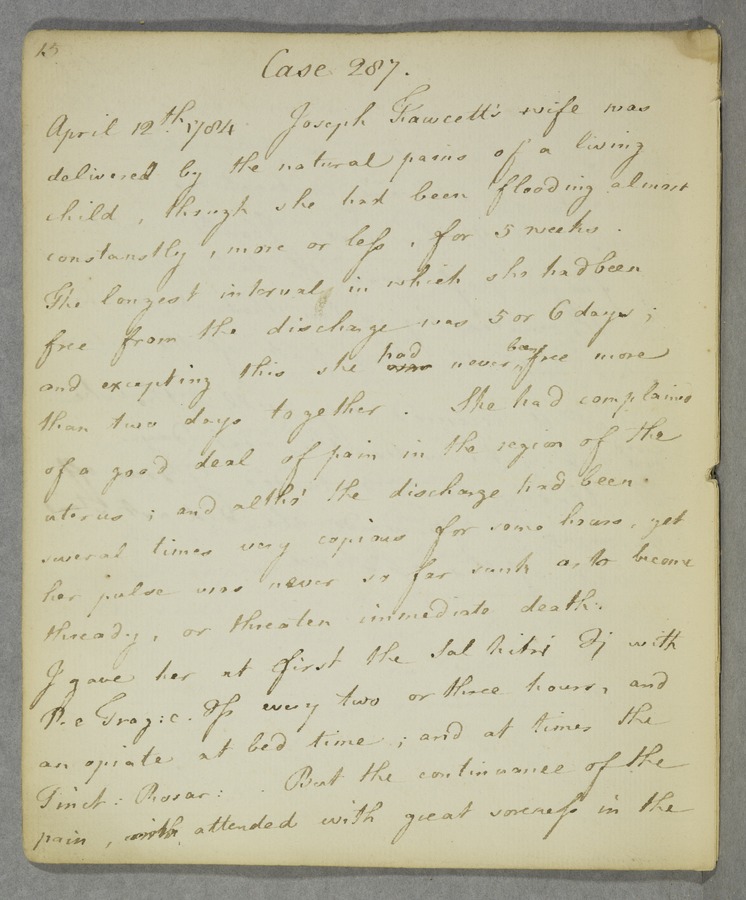 15
Case 287.
April 12th. 1784. Joseph Fawcett's wife was
delivered by the natural pains of a living
child, though she had been flooding almost
constanstly, more or less, for 5 weeks.
The longest interval in which she had been
free from the discharge was 5 or 6 days;
and excepting this she had never been free more
than two days together. She had complained
of a good deal of pain in the region of the
uterus; and altho' the discharge had been
several times very copious for some hours, yet
her pulse was never so far sunk as to become
thready, or threaten immediate death.
I gave her at first the Sal Nitri ʒj with
P. e Trag: c. ʒſs every two or three hours, and
an opiate at bed time; and at times the
Tinct: Rosar: . But the continuance of the
pain, with attended with great soreness in the